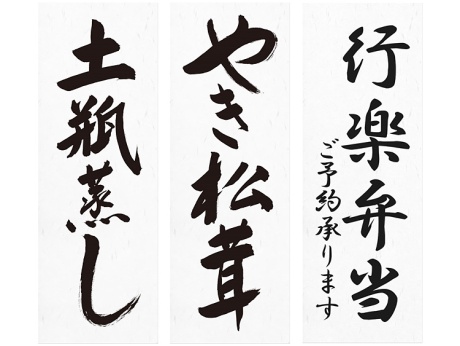 行楽弁当
ご予約承ります
やき松茸
土瓶蒸し